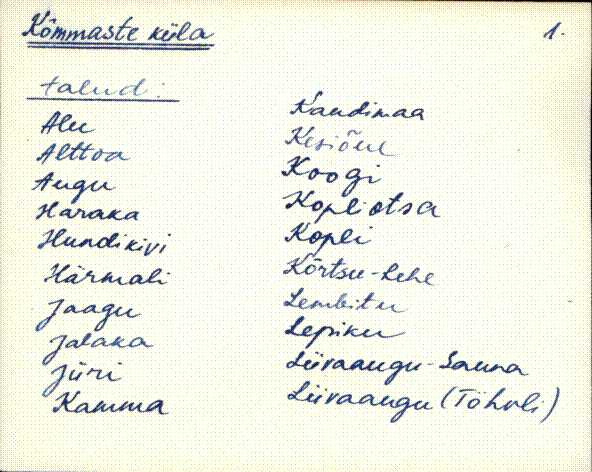 Kõmmaste küla
1.
talud:
Alu
Alttoa
Augu
Haraka
Hundikivi
Härmali
Jaagu
Jalaka
Jüri
Kamma
Kandimaa
Kesiõue
Koogi
Kopliotsa
Kopli
Kõrtsu-Lehe
Lembitu
Lepiku
Liivaaugu-Sauna
Liivaaugu (Tõhvli)